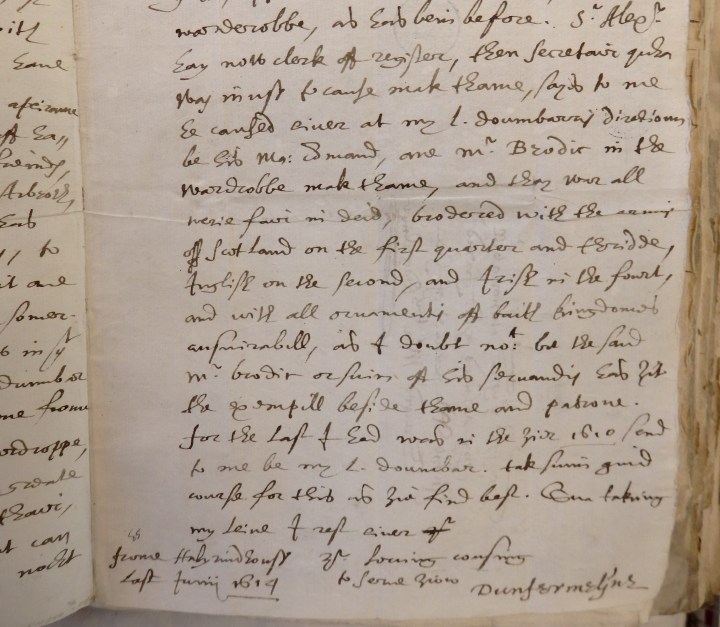 wardrobbe, as hes bein before. Sr Alexr
hay now clerk off register, then secretair quhen
Way in use to cause mak thame, sayes to me
he caused ewer at my l. doumbarris directioun
be his Ma: Edmand, ane mr Brodie in the
wardrobbe mak thame, and thay war all
werie fair in deid, brodered with the armis
off Scotland on the first quarter and thridde,
Inglish on the second, and Irish in the fourt,
and with all ornamentis off baith kingdomes
ansuirabill, as I doubt not bot the said
mr brodie or sum off his servandis hes zit
the exempill beside thame and patrone.
for the last I had was in the zeir 1610 send
to me be my l. doumbar. tak sum guid
course for this as zie find best. Sua taking
my leive I rest ewer
frome Halyrudhouss zr loving cousing
last Junij 1614 to serve zow
Dunfermelyne
ith
have
off ha,,
freinds,
Arbroth,
hes
, to
it ane
somer-
s in yr
dumbar
me frome
ordroppe,
create
thair,
t can
nocht